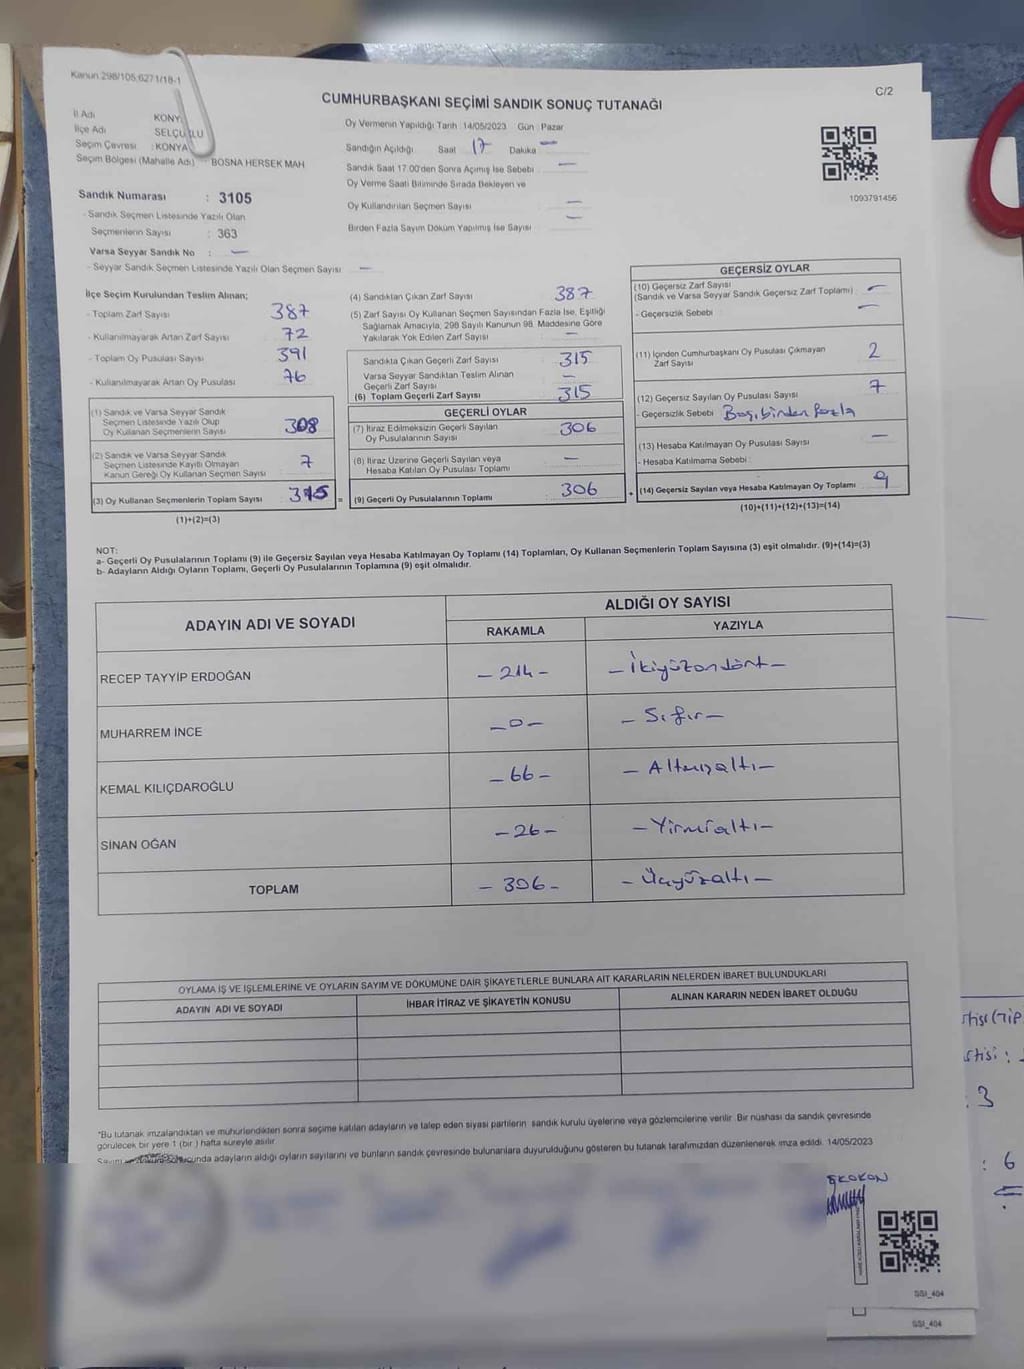 Kanun 298/105,6271/18-1
C/2
CUMHURBAŞKANI SEÇİMİ SANDIK SONUÇ TUTANAĞI
İl Adı KONY
İlçe Adı SELÇUKLU
Seçim Çevresi : KONYA
Seçim Bölgesi (Mahalle Adı) BOSNA HERSEK MAH
Sandık Numarası : 3105
- Sandık Seçmen Listesinde Yazılı Olan
Seçmenlerin Sayısı : 363
Varsa Seyyar Sandık No : —
- Seyyar Sandık Seçmen Listesinde Yazılı Olan Seçmen Sayısı —
Oy Vermenin Yapıldığı Tarih :14/05/2023 Gün : Pazar
Sandığın Açıldığı Saat 17 Dakika —
Sandık Saat 17.00'den Sonra Açımış İse Sebebi —
Oy Verme Saati Bitiminde Sırada Bekleyen ve
Oy Kullandırılan Seçmen Sayısı —
Birden Fazla Sayım Döküm Yapılmış İse Sayısı —
1093791456
İlçe Seçim Kurulundan Teslim Alınan;
- Toplam Zarf Sayısı 387
- Kullanılmayarak Artan Zarf Sayısı 72
- Toplam Oy Pusulası Sayısı 391
- Kullanılmayarak Artan Oy Pusulası 76
(1) Sandık ve Varsa Seyyar Sandık
Seçmen Listesinde Yazılı Olup
Oy Kullanan Seçmenlerin Sayısı 308
(2) Sandık ve Varsa Seyyar Sandık
Seçmen Listesinde Kayıtlı Olmayan
Kanun Gereği Oy Kullanan Seçmen Sayısı 7
(3) Oy Kullanan Seçmenlerin Toplam Sayısı 315 =
(1)+(2)=(3)
(4) Sandıktan Çıkan Zarf Sayısı 387
(5) Zarf Sayısı Oy Kullanan Seçmen Sayısından Fazla İse, Eşitliği
Sağlamak Amacıyla, 298 Sayılı Kanunun 98. Maddesine Göre
Yakılarak Yok Edilen Zarf Sayısı —
Sandıkta Çıkan Geçerli Zarf Sayısı 315
Varsa Seyyar Sandıktan Teslim Alınan
Geçerli Zarf Sayısı —
(6) Toplam Geçerli Zarf Sayısı 315
GEÇERLİ OYLAR
(7) İtiraz Edilmeksizin Geçerli Sayılan
Oy Pusulalarının Sayısı 306
(8) İtiraz Üzerine Geçerli Sayılan veya
Hesaba Katılan Oy Pusulası Toplamı —
(9) Geçerli Oy Pusulalarının Toplamı 306 +
GEÇERSİZ OYLAR
(10) Geçersiz Zarf Sayısı
(Sandık ve Varsa Seyyar Sandık Geçersiz Zarf Toplamı) : —
- Geçersizlik Sebebi : —
(11) İçinden Cumhurbaşkanı Oy Pusulası Çıkmayan
Zarf Sayısı 2
(12) Geçersiz Sayılan Oy Pusulası Sayısı 7
- Geçersizlik Sebebi Başıbirden fazla
(13) Hesaba Katılmayan Oy Pusulası Sayısı —
- Hesaba Katılmama Sebebi :
(14) Geçersiz Sayılan veya Hesaba Katılmayan Oy Toplamı 9
(10)+(11)+(12)+(13)=(14)
NOT:
a- Geçerli Oy Pusulalarının Toplamı (9) ile Geçersiz Sayılan veya Hesaba Katılmayan Oy Toplamı (14) Toplamları, Oy Kullanan Seçmenlerin Toplam Sayısına (3) eşit olmalıdır. (9)+(14)=(3)
b- Adayların Aldığı Oyların Toplamı, Geçerli Oy Pusulalarının Toplamına (9) eşit olmalıdır.
ADAYIN ADI VE SOYADI ALDIĞI OY SAYISI
RAKAMLA YAZIYLA
RECEP TAYYİP ERDOĞAN –214– –İkiyüzondört–
MUHARREM İNCE –0– –Sıfır–
KEMAL KILIÇDAROĞLU –66– –Altmışaltı–
SİNAN OĞAN –26– –Yirmialtı–
TOPLAM –306– –Üçyüzaltı–
OYLAMA İŞ VE İŞLEMLERİNE VE OYLARIN SAYIM VE DÖKÜMÜNE DAİR ŞİKAYETLERLE BUNLARA AİT KARARLARIN NELERDEN İBARET BULUNDUKLARI
ADAYIN ADI VE SOYADI İHBAR İTİRAZ VE ŞİKAYETİN KONUSU ALINAN KARARIN NEDEN İBARET OLDUĞU
"Bu tutanak imzalandıktan ve mühürlendikten sonra seçime katılan adayların ve talep eden siyasi partilerin sandık kurulu üyelerine veya gözlemcilerine verilir. Bir nüshası da sandık çevresinde
görülecek bir yere 1 (bir ) hafta süreyle asılır.
adayların aldığı oyların sayılarını ve bunların sandık çevresinde bulunanlara duyurulduğunu gösteren bu tutanak tarafımızdan düzenlenerek imza edildi. 14/05/2023
SSI_404
SSI_404
(TİP
: 3
: 6